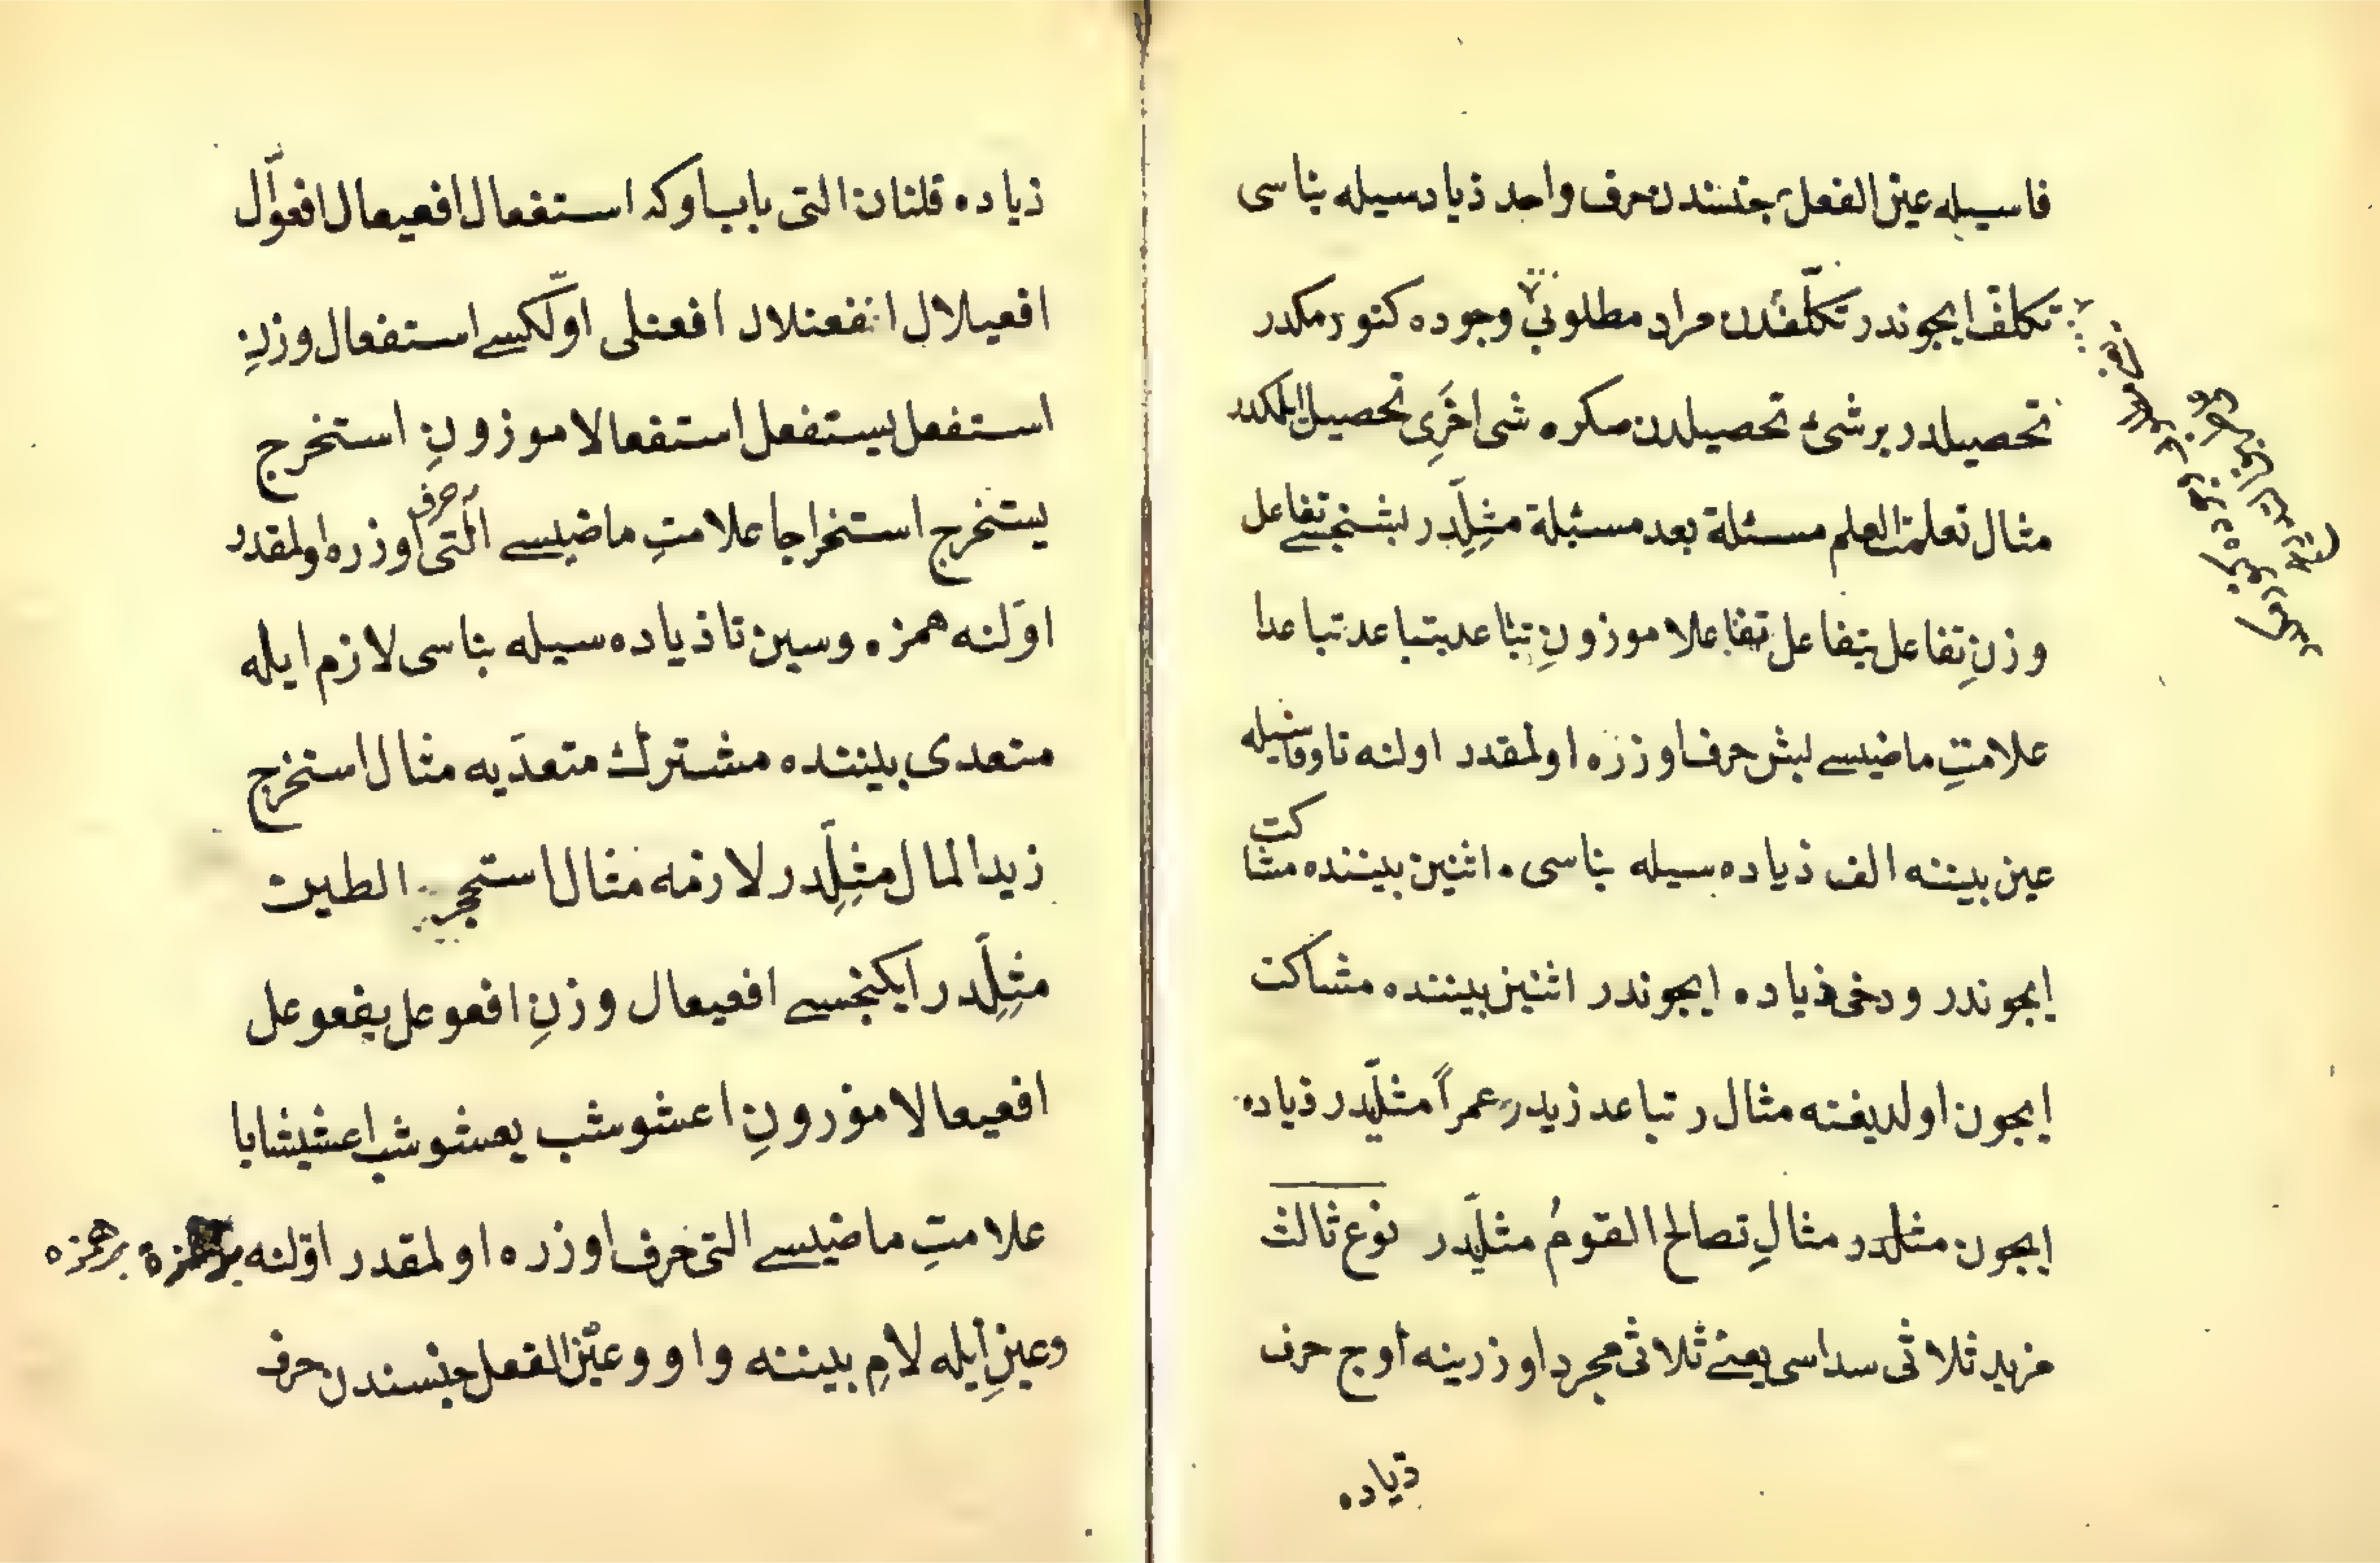 فاسیله عین الفعل جنسندن حرف واحد ذیادسیله بناسی
تکلف ایچوندر تکلفدن مراد مطلوبی وجوده کتورمکدر
تحصیلدر بر شیء تحصیلدن صکره شی اخری تحصیل ایلمکدر
مثال تعلمت العلم مسئلة بعد مسئلة مثلدر بشنجسے تفاعل
وزنِ تفاعل یتفاعل تفاعلا موزونِ تباعد یتباعد تباعدا
علامتِ ماضیسے بش حرف اوزره اولمقدر اولنه تا وفاسیله
عین بیننه الف ذیاده سیله بناسی اثنین بیننده مشاکت
ایچوندر ودخی ذیاده ایچوندر اثنین بیننده مشاکت
ایچون اولدیغنه مثالدر تباعد زید عمراً مثلّدر ذیاده
ایچون مثلدر مثالِ تصالح القومُ مثلّدر نوع ثالث
مزید ثلاثی سداسی یعنے ثلاثی مجرد اوزرینه اوج حرف
ذیاده
ذیاده قلنان التی بابدر اوکه استفعال افعیعال افعوّال
افعیلال افعنلال افعنلی اوّلکسے استفعال وزنِ
استفعل یستفعل استفعالا موزونِ استخرج
یستخرج استخراجا علامتِ ماضیسے التی حرف اوزره اولمقدر
اوّلنه همزه وسین تا ذیاده سیله بناسی لازم ایله
متعدی بیننده مشترك متعدّیه مثال استخرج
زید المال مثلّدر لازمه مثال استحجر الطین
مثلّدر ایکنجسے افعیعال وزنِ افعوعل یفعوعل
افعیعالا موزونِ اعشوشب یعشوشب اعشیشابا
علامتِ ماضیسے التی حرف اوزره اولمقدر اوّلنه بر همزه
وعینِ ایله لامِ بیننه واو وعین الفعل جنسندن حرف